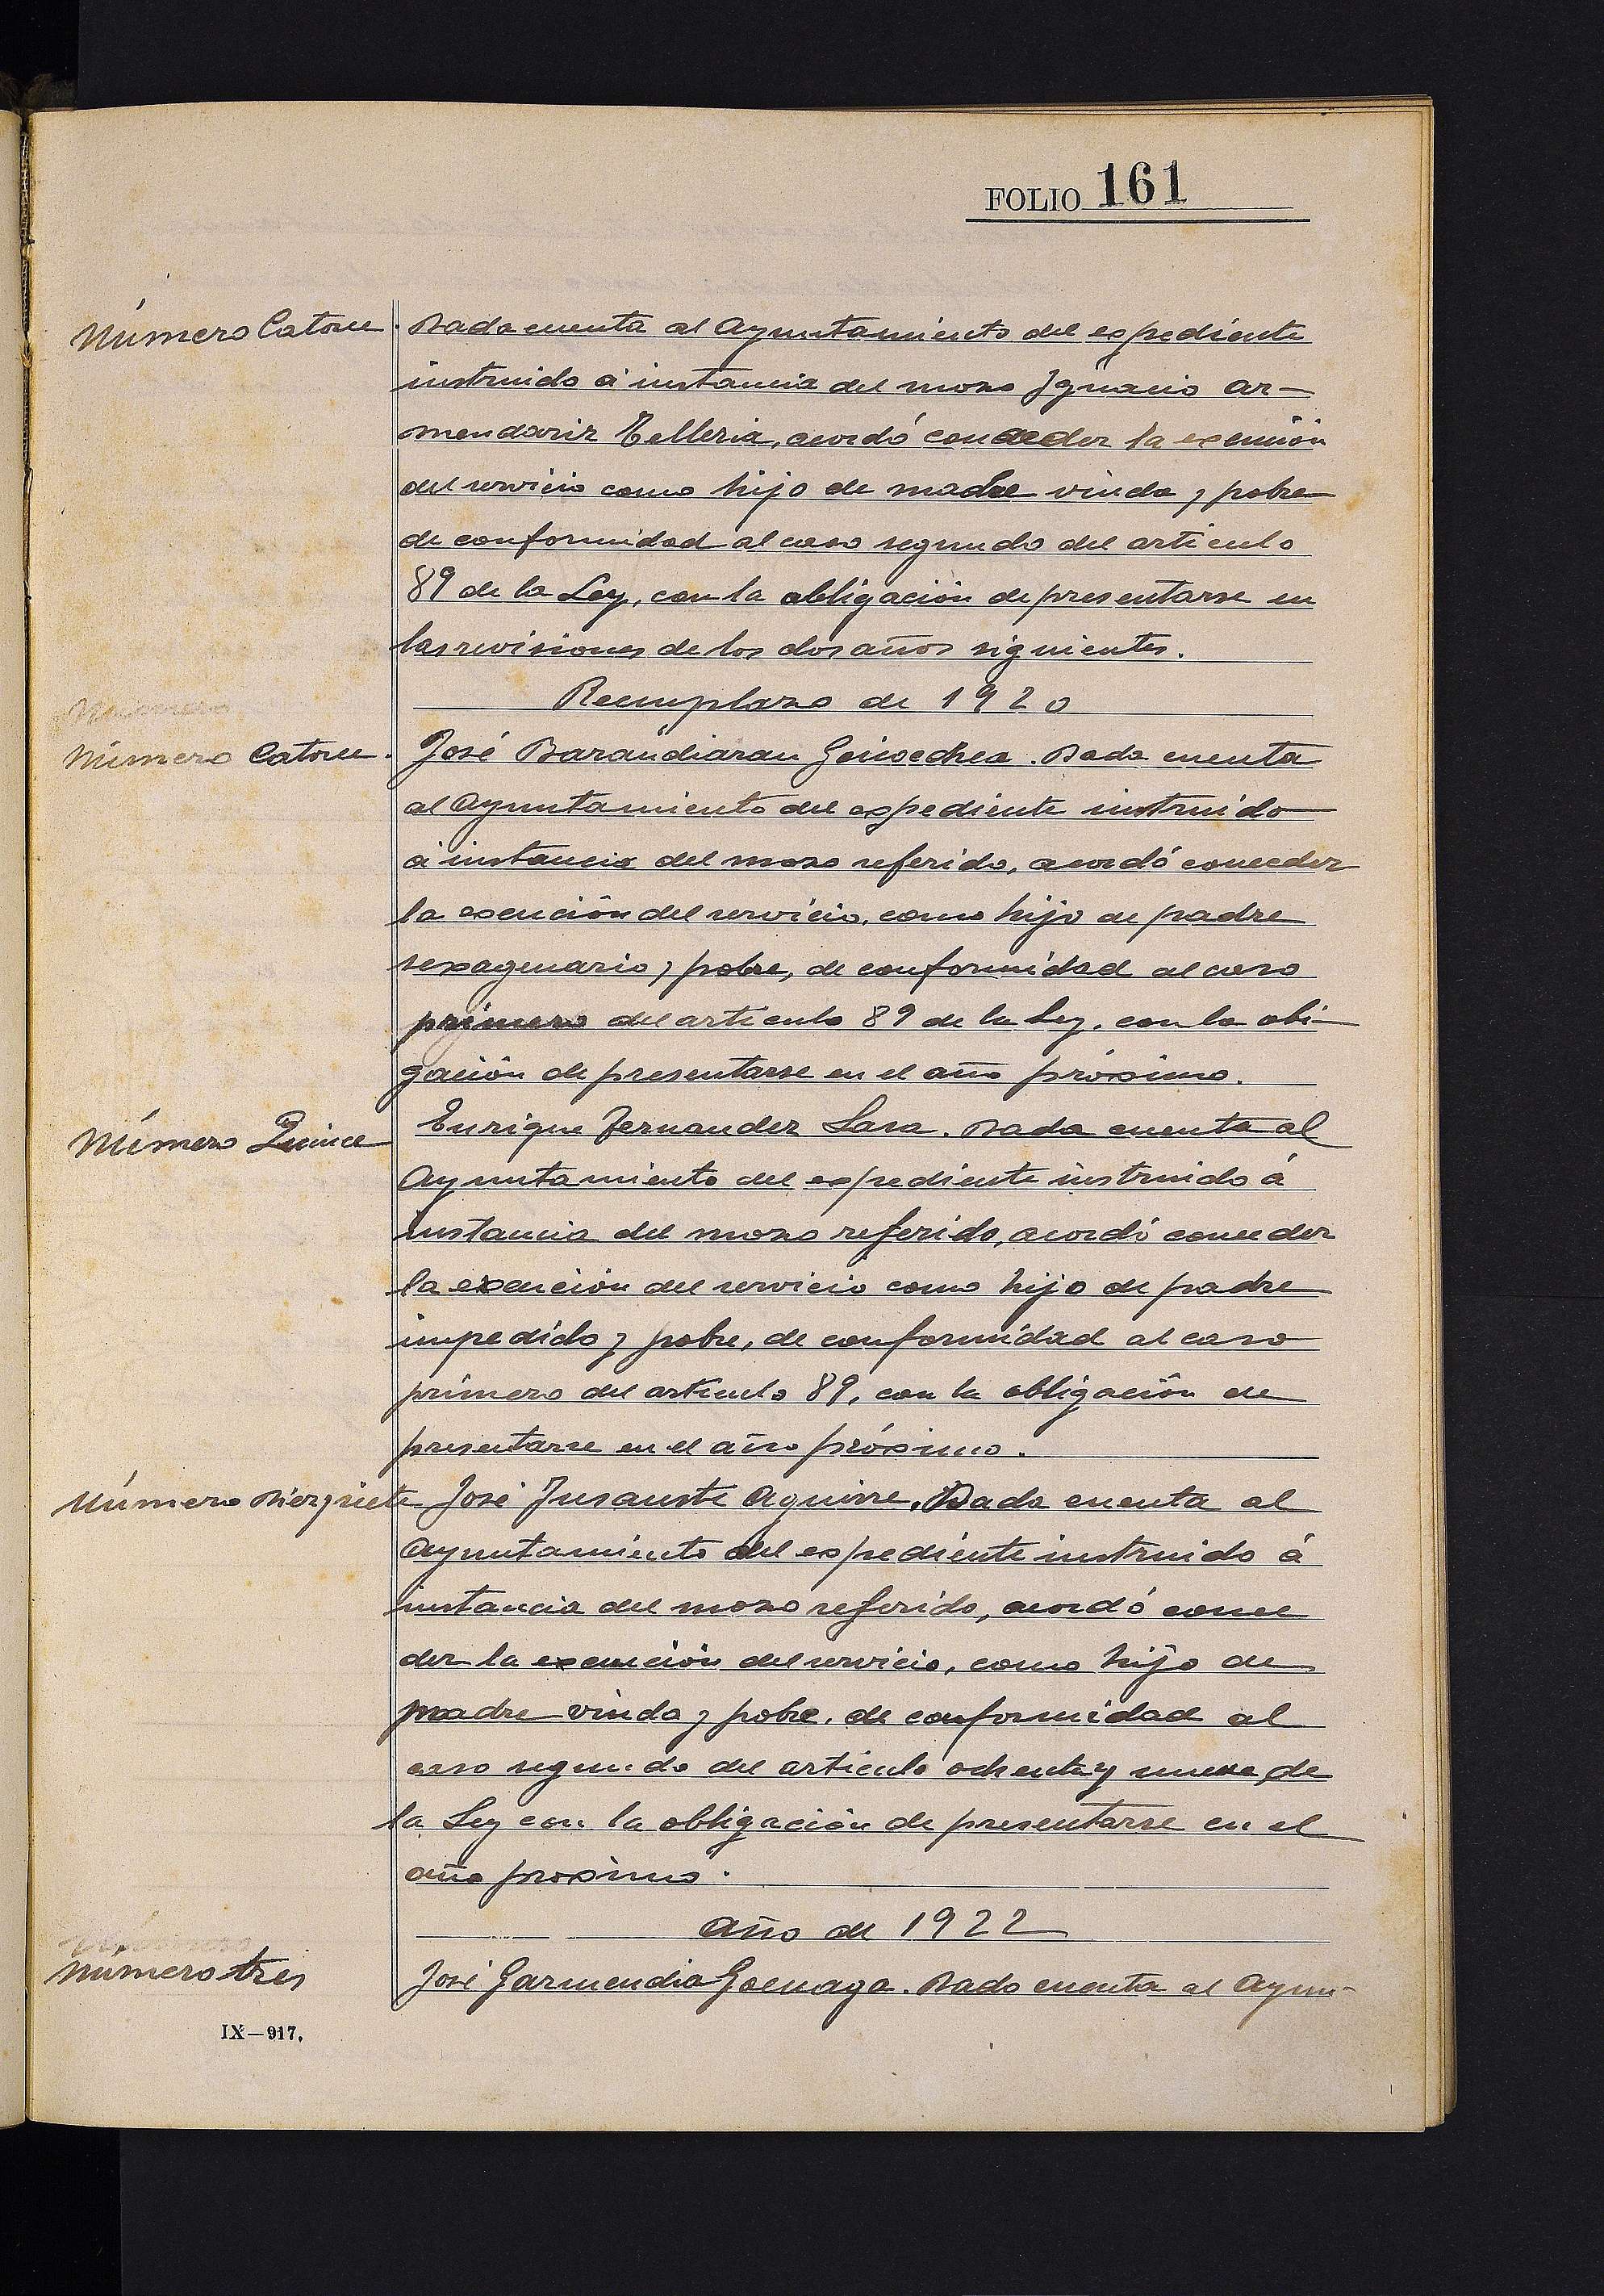 FOLIO 161
Número Catorce. Dada cuenta al Ayuntamiento del expediente
instruido á instancia del mozo Ignacio Ar-
mendariz Telleria, acordó conceder la exención
del servicio como hijo de madre viuda y pobre
de conformidad al caso segundo del articulo
89 de la Ley, con la obligación de presentarse en
las revisiones de los dos años siguientes.
Reemplazo de 1920
Número
Número Catorce. José Barandiaran Goicoechea. Dada cuenta
al Ayuntamiento del expediente instruido
á instancia del mozo referido, acordó conceder
la exención del servicio, como hijo de padre
sexagenario y pobre, de conformidad al caso
primero del articulo 89 de la Ley, con la obi-
gación de presentarse en el año próximo.
Número Quince Enrique Fernandez Lasa. Dada cuenta al
Ayuntamiento del expediente instruido á
instancia del mozo referido, acordó conceder
la exención del servicio como hijo de padre
impedido y pobre, de conformidad al caso
primero del articulo 89, con la obligación de
presentarse en el año próximo.
Número Diez y siete José Insausti Aguirre. Dada cuenta al
Ayuntamiento del expediente instruido á
instancia del mozo referido, acordó conce
der la exención del servicio, como hijo de
madre viuda y pobre, de conformidad al
caso segundo del articulo ochenta y nueve de
la Ley con la obligación de presentarse en el
año proximo.
Año de 1922
Número
Número tres José Garmendia Goenaga. Dada cuenta al Ayun-
IX—917.